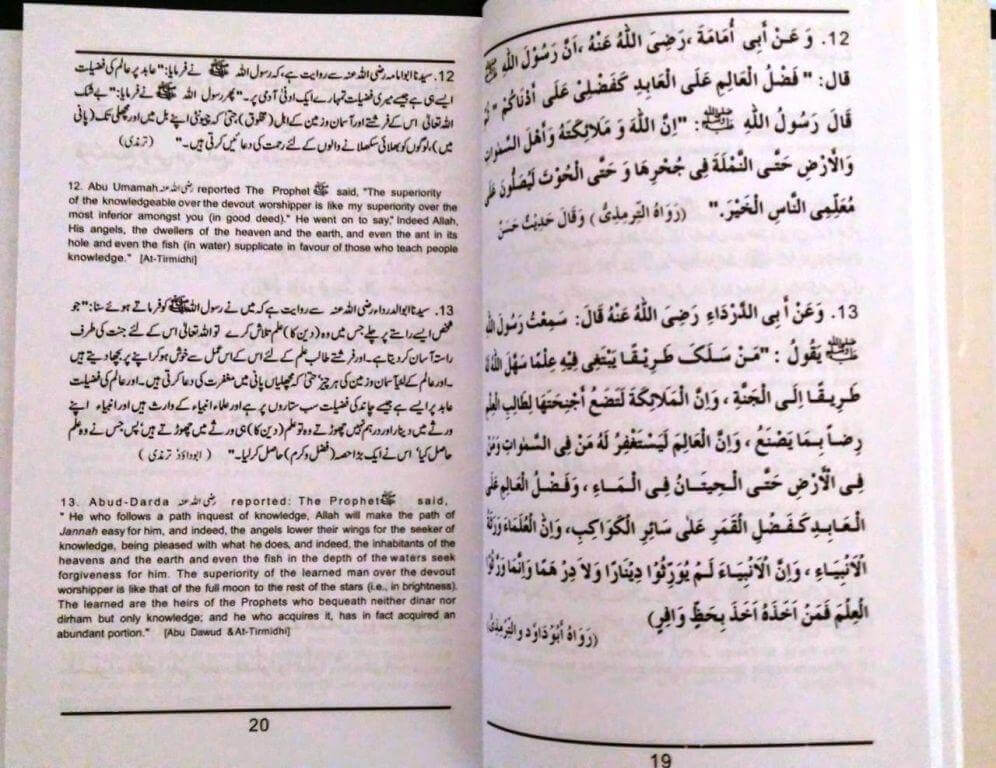 12. وَ عَنْ أَبِى أُمَامَةَ ،رَضِىَ اللّٰهُ عَنْهُ ،اَنَّ رَسُوْلَ اللّٰهِ ﷺ
قال: " فَضْلُ الْعَالِمِ عَلَى الْعَابِدِ كَفَضْلِىْ عَلَى أَدْنَاكُمْ " ثُمَّ
قَالَ رَسُوْلُ اللّٰهِ ﷺ: "اِنَّ اللّٰهَ وَ مَلَائِكَتَهُ وَأَهْلَ السَّمٰوَاتِ
وَالْأَرْضِ حَتَّى النَّمْلَةَ فِى جُحْرِهَا وَ حَتَّى الْحُوْتَ لَيُصَلُّونَ عَلَى
مُعَلِّمِى النَّاسِ الْخَيْرَ." (رَوَاهُ التِّرمِذِىُّ ) وَقَالَ حَدِيْثٌ حَسَنٌ
13. وَعَنْ أَبِى الدَّرْدَاءِ رَضِىَ اللّٰهُ عَنْهُ قَالَ: سَمِعْتُ رَسُوْلَ اللّٰهِ
ﷺ يَقُوْلُ : "مَنْ سَلَكَ طَرِيْقًا يَبْتَغِى فِيْهِ عِلْمًا سَهَّلَ اللّٰهُ لَهُ
طَرِيقًا اِلَى الْجَنَّةِ ، وَاِنَّ الْمَلَائِكَةَ لَتَضَعُ أَجْنِحَتَهَا لِطَالِبِ الْعِلْمِ
رِضاً بِمَا يَصْنَعُ ، وَاِنَّ الْعَالِمَ لَيَسْتَغْفِرُ لَهُ مَنْ فِى السَّمٰوَاتِ وَمَنْ
فِى الْأَرْضِ حَتَّى الْحِيتَانُ فِى الْمَاءِ ، وَفَضْلُ الْعَالِمِ عَلَى
الْعَابِدِ كَفَضْلِ الْقَمَرِ عَلَى سَائِرِ الْكَوَاكِبِ، وَاِنَّ الْعُلَمَاءَ وَرَثَةُ
الْاَنْبِيَاءِ ، وَاِنَّ الْاَنْبِيَاءَ لَمْ يُوَرِّثُوْا دِيْنَارًا وَلاَ دِرْهَمًا وَاِنَّمَا وَرَّثُوْا
الْعِلْمَ فَمَنْ اَخَذَهُ اَخَذَ بِحَظٍّ وَافِرٍ)
(رَوَاهُ أَبُوْدَاوُد والتِّرْمِذِىُّ)
19
12. سیدنا ابو امامہ رضی اللہ عنہ سے روایت ہے، کہ رسول اللہ ﷺ نے فرمایا: "عابد پر عالم کی فضیلت
ایسے ہی ہے جیسے میری فضیلت تمہارے ایک ادنیٰ آدمی پر۔" پھر رسول اللہ ﷺ نے فرمایا: "بے شک
اللہ تعالیٰ اس کے فرشتے اور آسمان و زمین کے اہل (مخلوق) حتیٰ کہ چیونٹی اپنے بل میں اور مچھلی تک (پانی
میں) لوگوں کو بھلائی سکھلانے والوں کے لئے رحمت کی دعائیں کرتی ہیں۔" (ترمذی)
12. Abu Umamah رضی اللہ عنہ reported The Prophet ﷺ said, "The superiority
of the knowledgeable over the devout worshipper is like my superiority over the
most inferior amongst you (in good deed)." He went on to say," Indeed Allah,
His angels, the dwellers of the heaven and the earth, and even the ant in its
hole and even the fish (in water) supplicate in favour of those who teach people
knowledge." [At-Tirmidhi]
13. سیدنا ابوالدرداء رضی اللہ عنہ سے روایت ہے کہ میں نے رسول اللہ ﷺ کو فرماتے ہوئے سنا: "جو
شخص ایسے راستے پر چلے جس میں وہ (دین کا) علم تلاش کرے تو اللہ تعالیٰ اس کے لئے جنت کی طرف
راستہ آسان کر دیتا ہے۔ اور فرشتے طالب علم کے لئے اس کے اس عمل سے خوش ہو کر اپنے پر بچھا دیتے ہیں
۔اور عالم کے لئے آسمان و زمین کی ہر چیز حتیٰ کہ مچھلیاں پانی میں مغفرت کی دعا کرتی ہیں۔ اور عالم کی فضیلت
عابد پر ایسے ہے جیسے چاند کی فضیلت سب ستاروں پر ہے اور علماء انبیاء کے وارث ہیں اور انبیاء اپنے
ورثے میں دینار اور درہم نہیں چھوڑتے وہ تو علم (دین کا) ہی ورثے میں چھوڑتے ہیں: پس جس نے وہ علم
حاصل کیا' اس نے ایک بڑا حصہ (فضل و کرم) حاصل کر لیا۔" (ابوداؤد ترمذی)
13. Abud-Darda رضی اللہ عنہ reported: The Prophet ﷺ said,
" He who follows a path inquest of knowledge, Allah will make the path of
Jannah easy for him, and indeed, the angels lower their wings for the seeker of
knowledge, being pleased with what he does, and indeed, the inhabitants of the
heavens and the earth and even the fish in the depth of the waters seek
forgiveness for him. The superiority of the learned man over the devout
worshipper is like that of the full moon to the rest of the stars (i.e., in brightness).
The learned are the heirs of the Prophets who bequeath neither dinar nor
dirham but only knowledge; and he who acquires it, has in fact acquired an
abundant portion." [Abu Dawud & At-Tirmidhi]
20